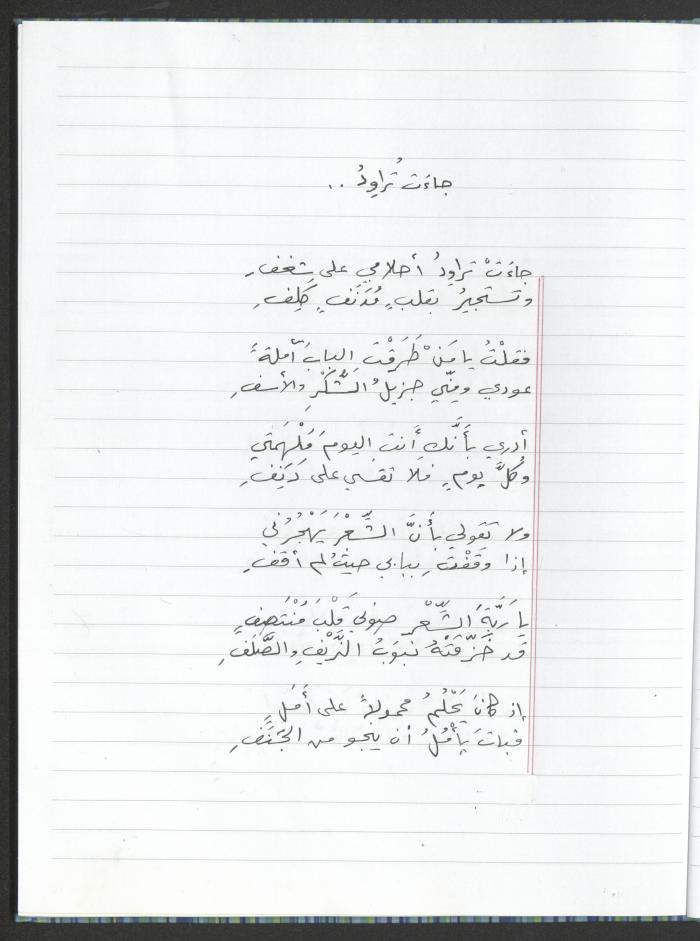 جاءَت تُراوِدُ ..
جاءَتْ تراوِدُ أحلامي على شغفِ
وتستجيرُ بقلبٍ مُدنَفٍ كَلِفِ
فقلْتُ يا مَنْ طَرَقْتِ البابَ آملةً
عودي ومِنّي جزيلُ الشُّكْرِ والأسفِ
أدري بأَنَّكِ أَنتِ اليومَ مُلْهَمَتي
وكُلَّ يومٍ فلا تقسي على دَنِفِ
ولا تقولي بأَنَّ الشِّعْرَ يَهْجُرُني
إذا وقَفْتِ ببابي حيثُ لم أقفِ
يا رَبَّةَ الشِّعْرِ صوني قَلْبَ مُنْتَصِفٍ
قد مَزَّقَتْهُ نيوبُ الزَّيْفِ والصَّلَفِ
إذ كانَ يَحْلُمُ محمولاً على أَمَلٍ
فباتَ يأْمُلُ أن ينجو من الجَنَفِ